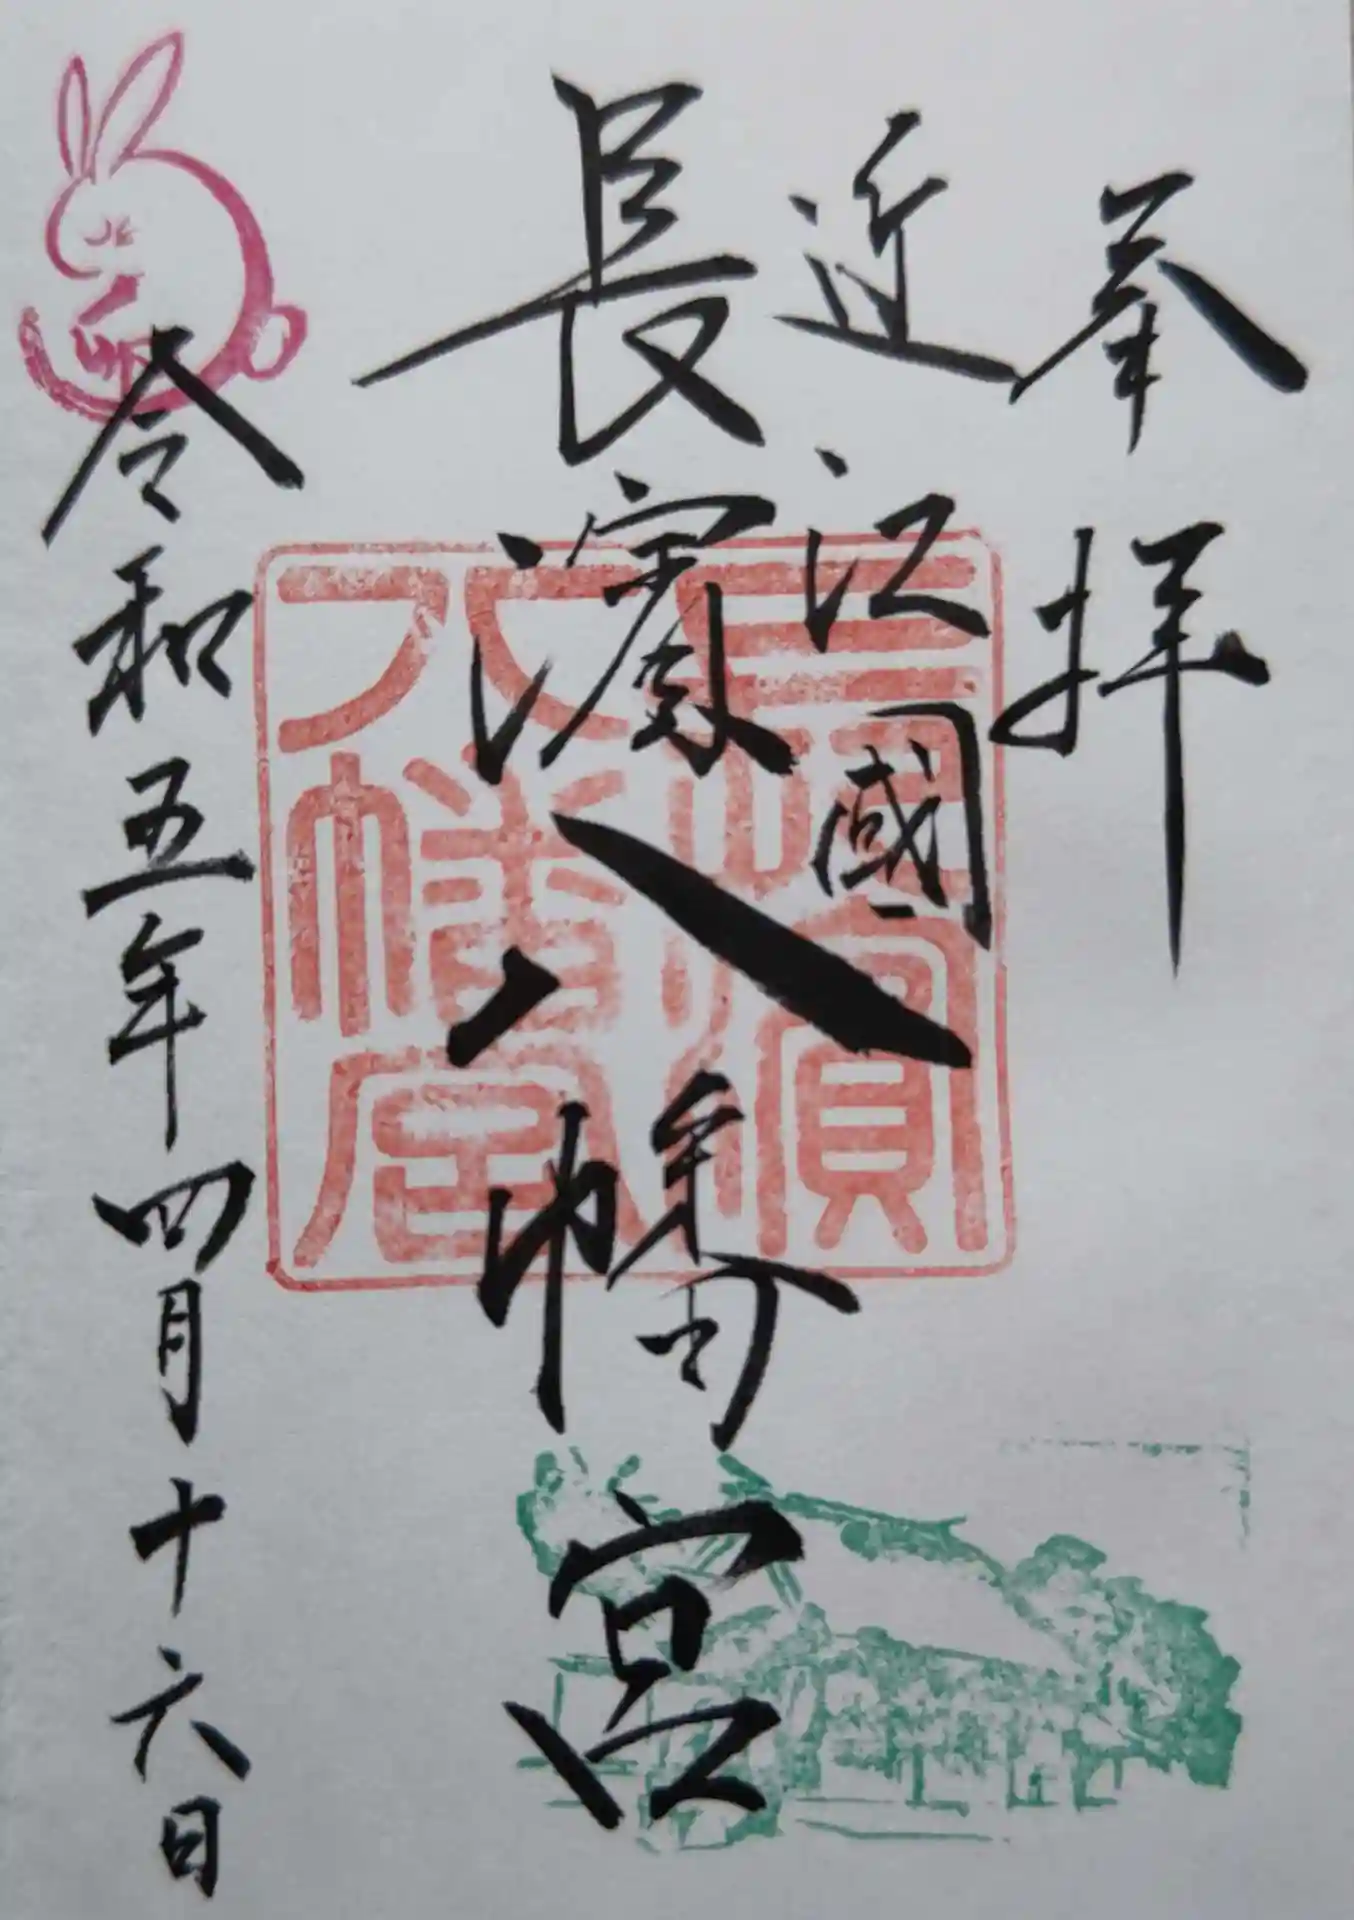 奉拝
近江國
長濱八幡宮
長濱八幡宮
令和五年四月十六日
卯